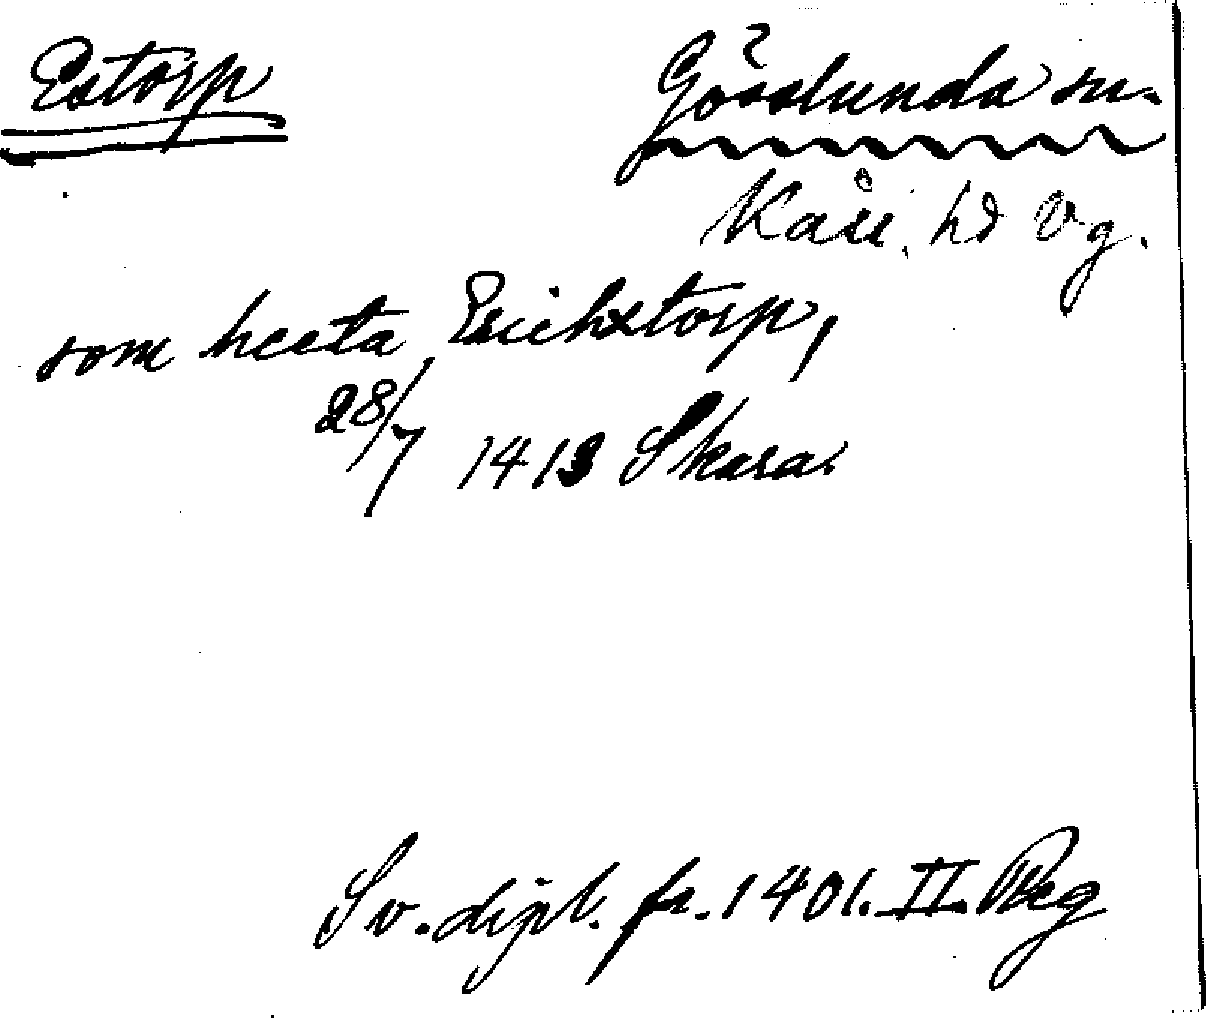 Estorp
Gösslunda sn.
Kåll. hd Vg.
som heeta Erichstorp,
28/7 1413 Skara.
Sv. dipl. fr. 1401. II. Reg